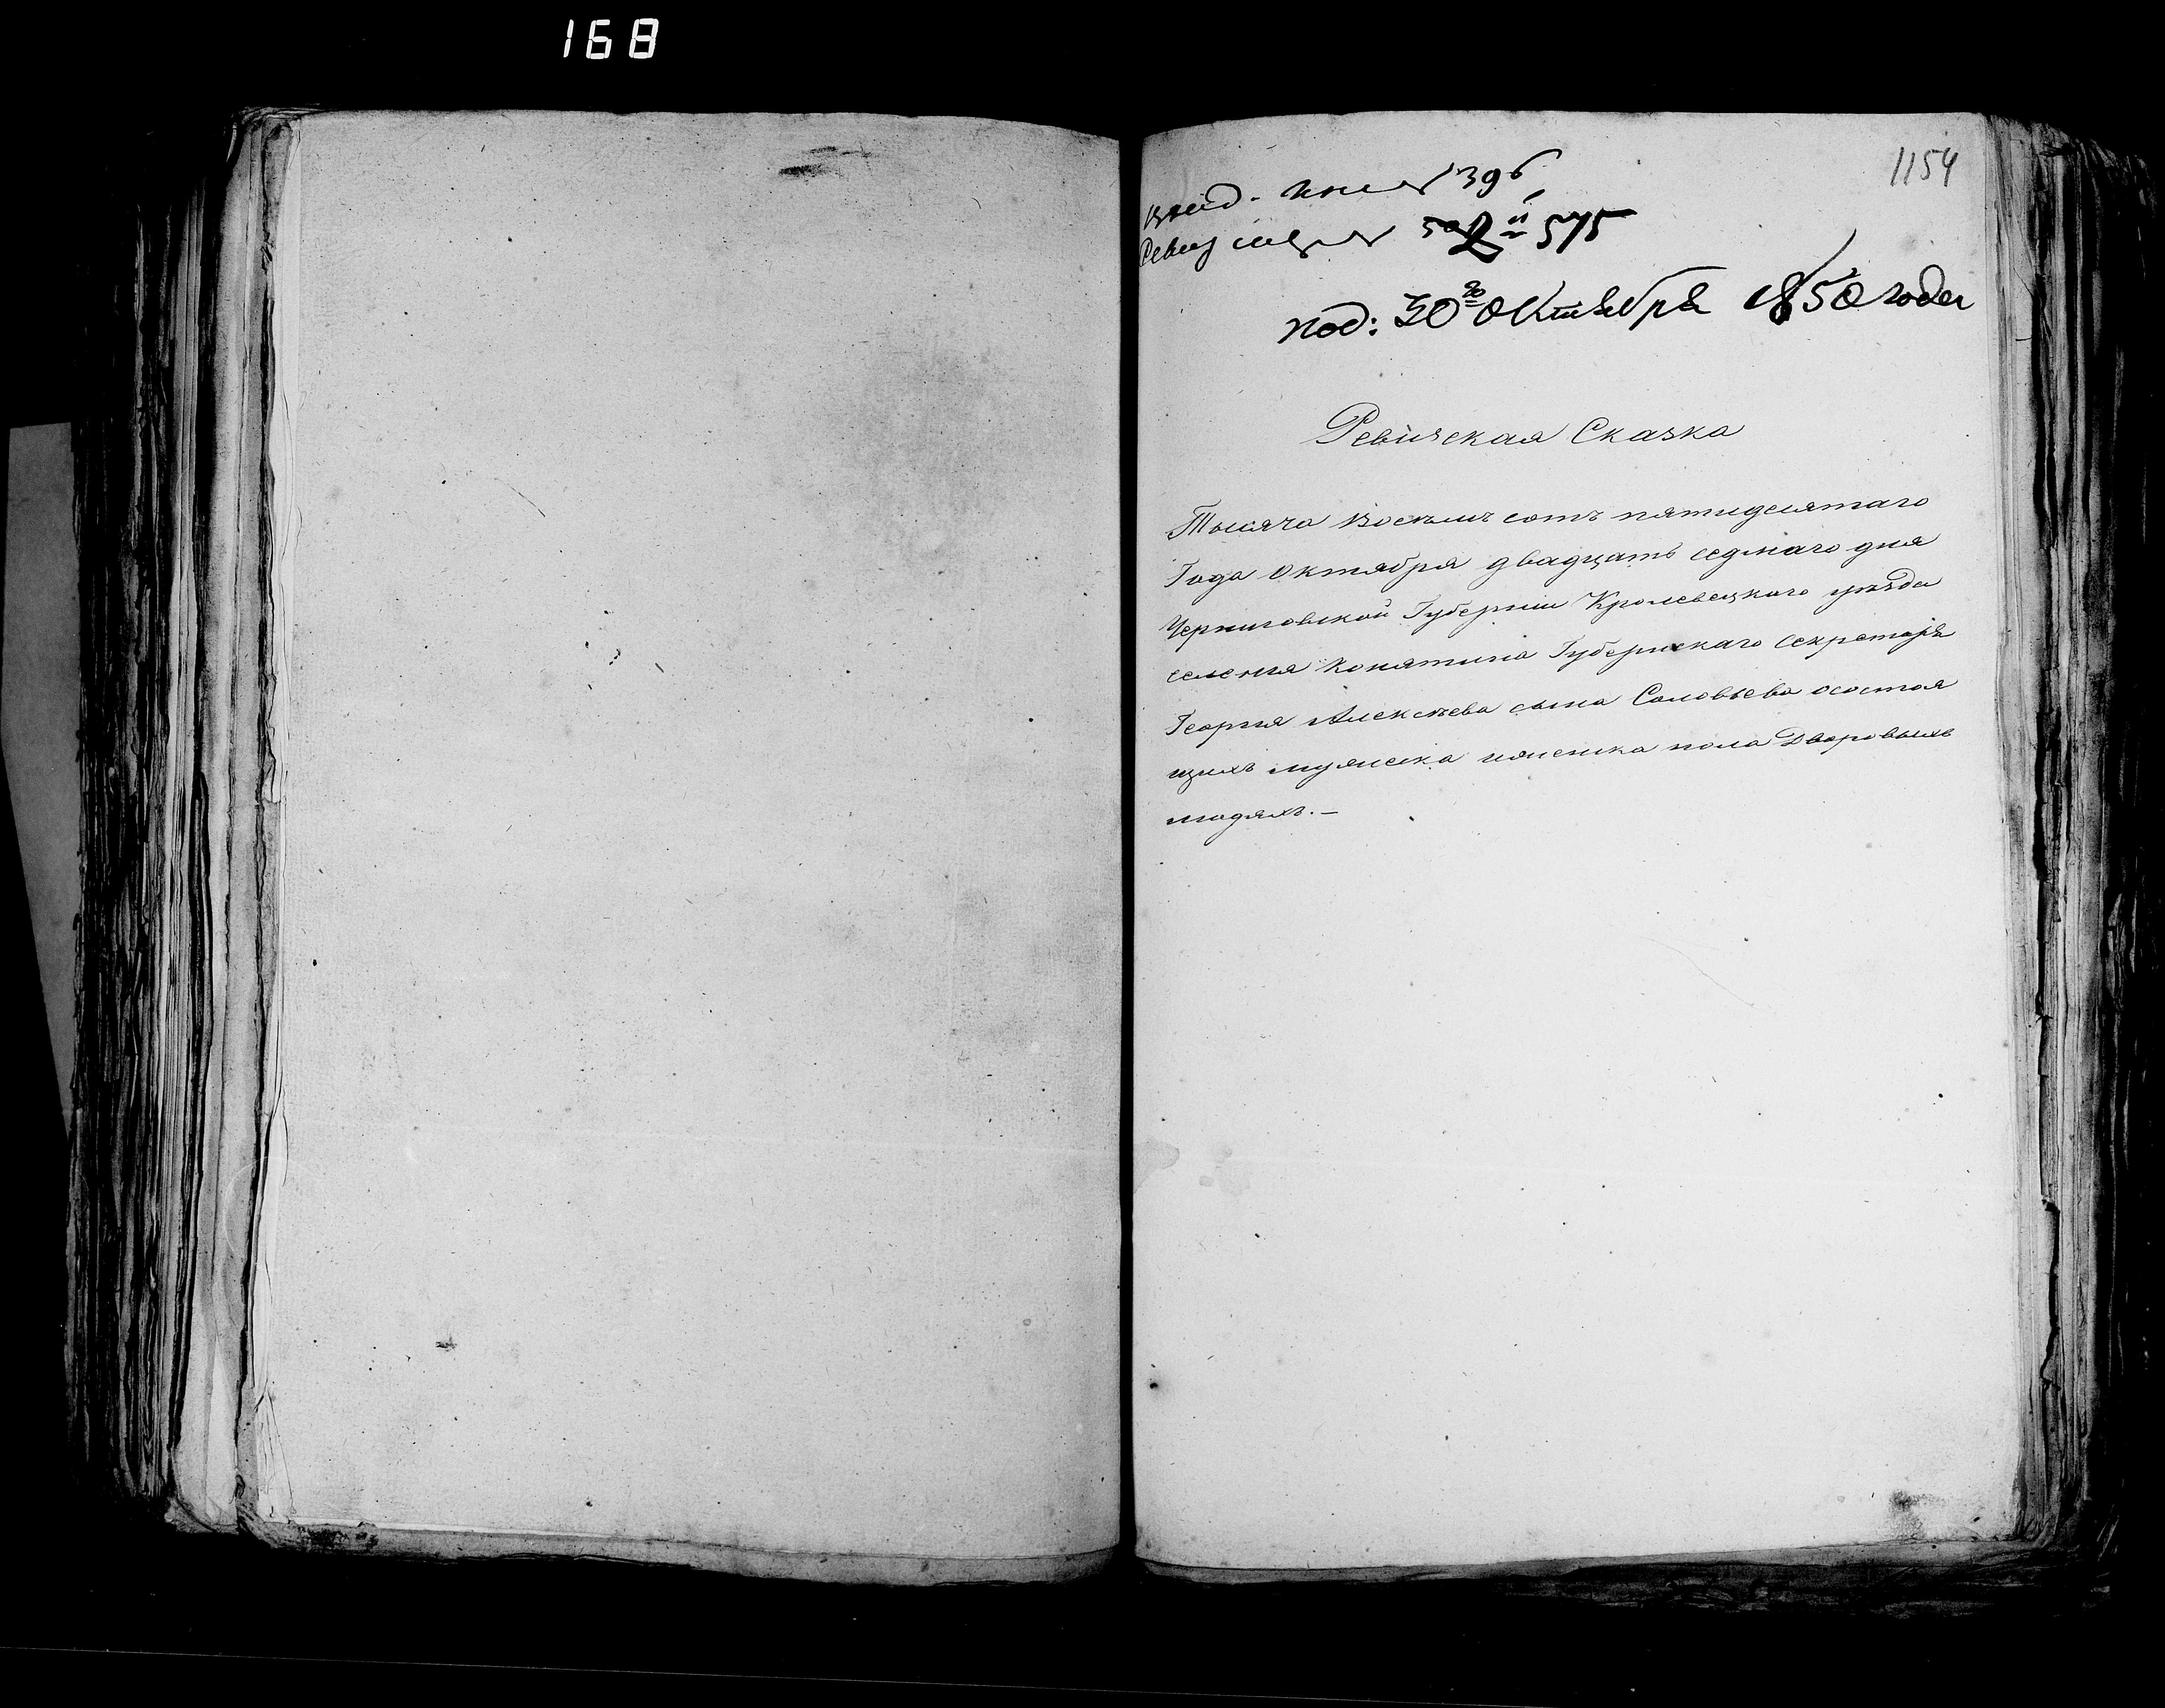 168
1154
396
575
под: 30го Октября 1850 года
Ревиская Сказка
Тысяча Восемь сотъ пятидесятаго
Года Октября двадцать седмаго дня
Черниговской Губернии Кролевецкого уезда
селения Конятина Губернскаго Секретаря
Георгия Алексеева сына Соловьева осостоя
щихъ мужеска иженска пола Дворовыхъ
людяхъ.—